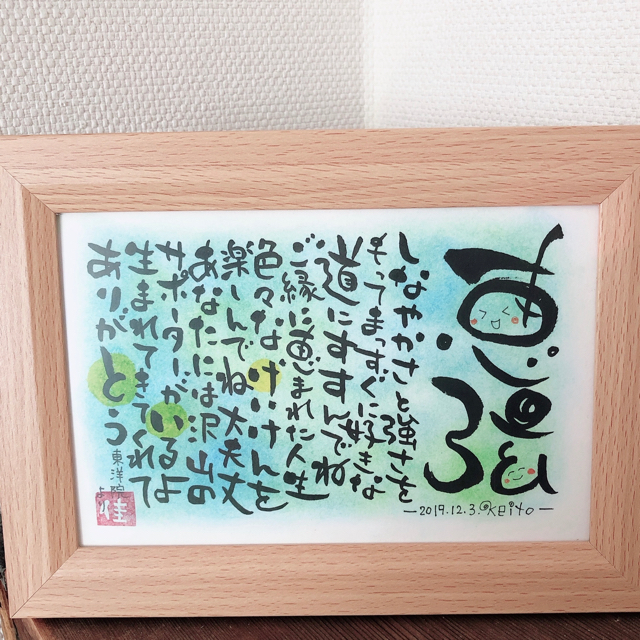 —2019.12.3.KEITO—
しなやかさと強さを
もってまっすぐに好きな
道にすすんでね
ご縁に恵まれた人生
色々なけいけんを
楽しんでね大夫丈
あなたには沢山の
サポーターがいるよ
生まれてきてくれて
ありがとう
東洋院
より